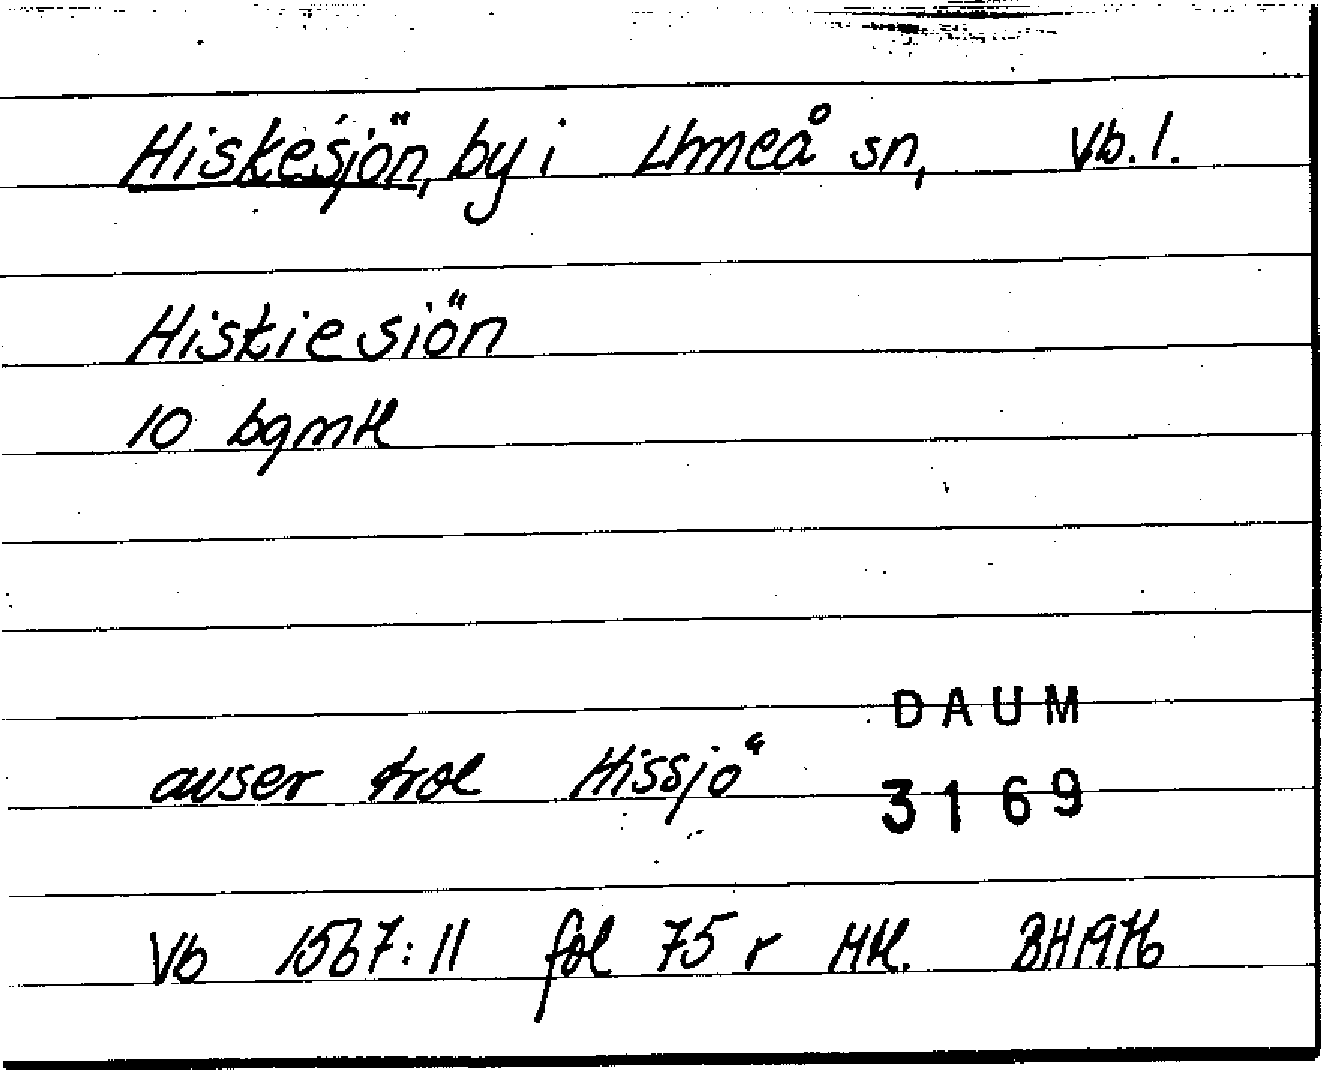 Hiskesjön, by i Umeå sn, Vb. l.
Hiskie siön
10 bgmtl
DAUM
avser trol Hissjö
3169
Vb 1567:11 fol 75 r Mtl. BH1976